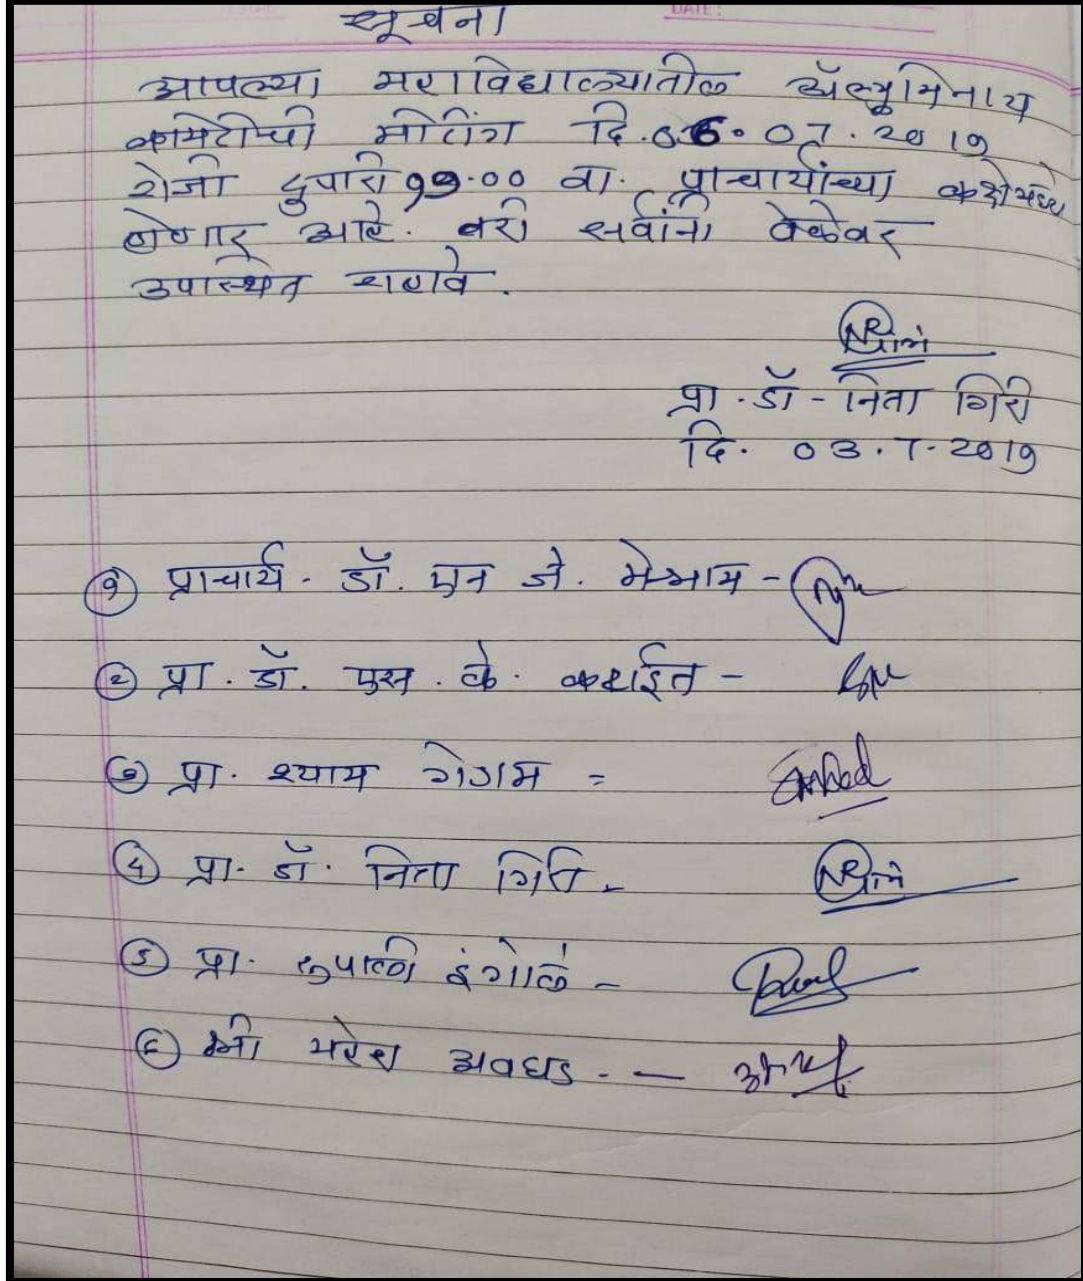 सूचना
DATE:
आपल्या महाविद्यालयातील अ‍ॅल्युमिनाय
कमिटीची मीटिंग दि. 06.07.2019
रोजी दुपारी 11.00 वा. प्राचार्यांच्या कक्षेमध्ये
होणार आहे. तरी सर्वांनी वेळेवर
उपस्थित राहावे.
प्रा. डॉ - निता गिरी
दि. 03.7.2019
१ प्राचार्य. डॉ. एन जे. मेश्राम -
२ प्रा. डॉ. एस. के. -
३ प्रा. श्याम =
4 प्रा. डॉ. निता गिरी -
5 प्रा. रुपाली इंगोले -
६ श्री अवघड. -